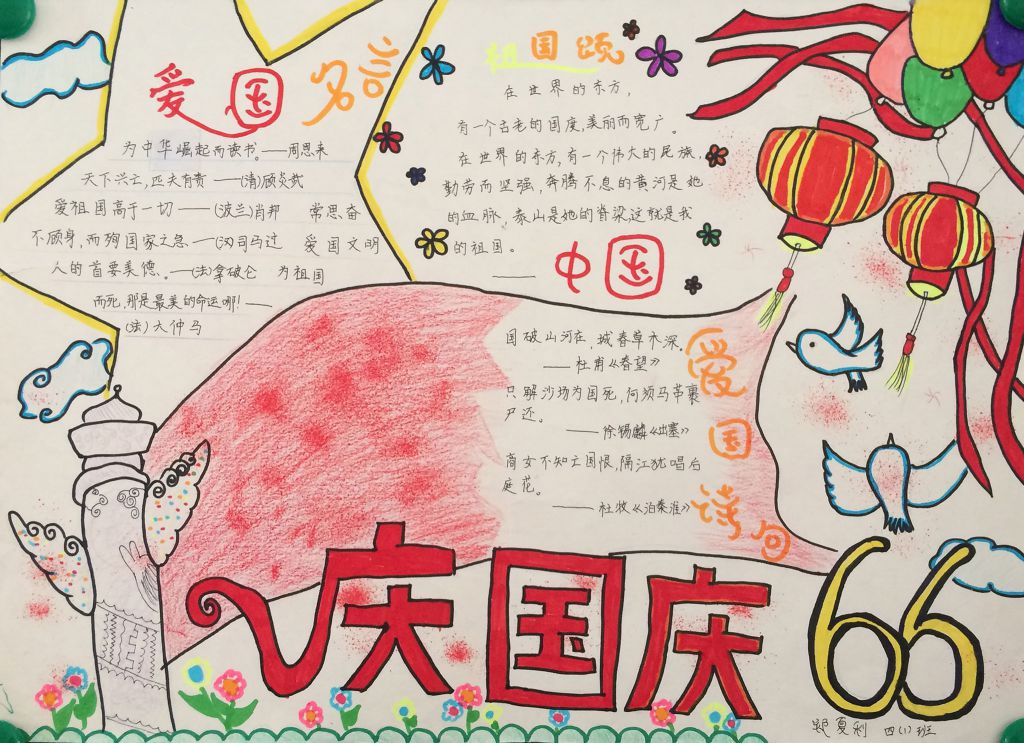 爱国名言
为中华崛起而读书。——周恩来
天下兴亡,匹夫有责——(清)顾炎武
爱祖国高于一切——(波兰)肖邦 常思奋
不顾身,而殉国家之急。——(汉)司马迁 爱国文明
人的首要美德。——(法)拿破仑 为祖国
而死,那是最美的命运哪!——
(法)大仲马
祖国颂
在世界的东方,
有一个古老的国度,美丽而宽广。
在世界的东方,有一个伟大的民族,
勤劳而坚强,奔腾不息的黄河是她
的血脉,泰山是她的脊梁这就是我
的祖国。
——中国
爱国诗词
国破山河在,城春草木深。
——杜甫《春望》
只解沙场为国死,何须马革裹
尸还。
——徐锡麟《出塞》
商女不知亡国恨,隔江犹唱后
庭花。
——杜牧《泊秦淮》
庆国庆
66
四(1)班